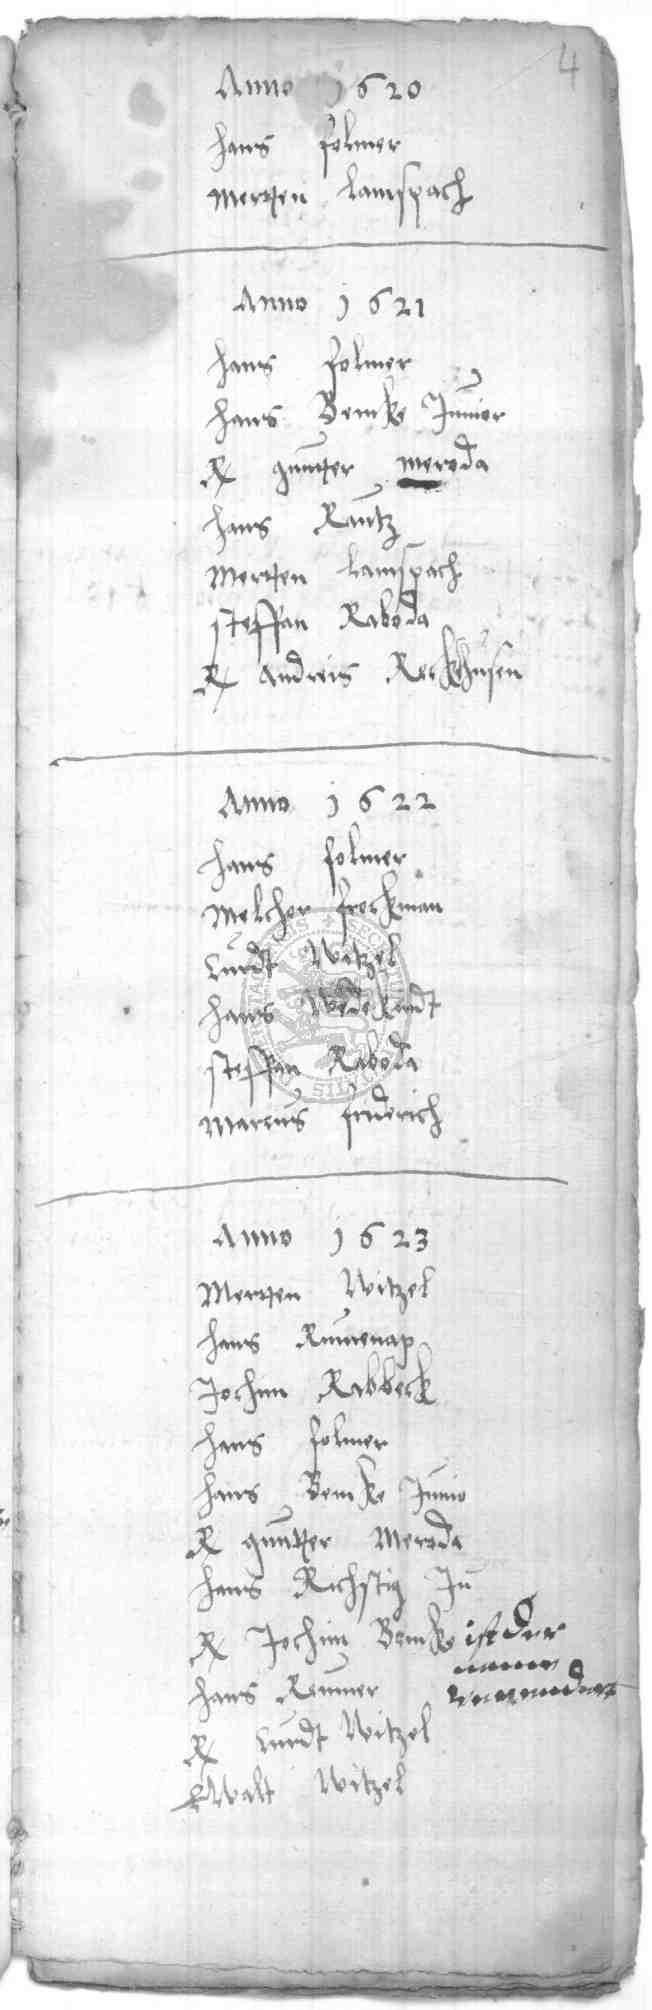 4
Anno 1620
hans folmer
Merten Lamspach
Anno 1621
hans folmer
hans Bemke Junior
R gunter meroda
hans Rautz
Merten Lamspach
steffan Raboda
R andreis Reckhusen
Anno 1622
hans folmer
Melcher freckman
Curdt Witzel
hans Wedekindt
steffan Raboda
Marcus friderich
Anno 1623
Merten Witzel
hans Rumenap
Jochim Rabbeck
hans folmer
hans Bemke Junio
R gunter Meroda
hans Richstig Ju
R Jochim Bemke ist der
hans Reumer
R Curdt Witzel
Ewalt Witzel